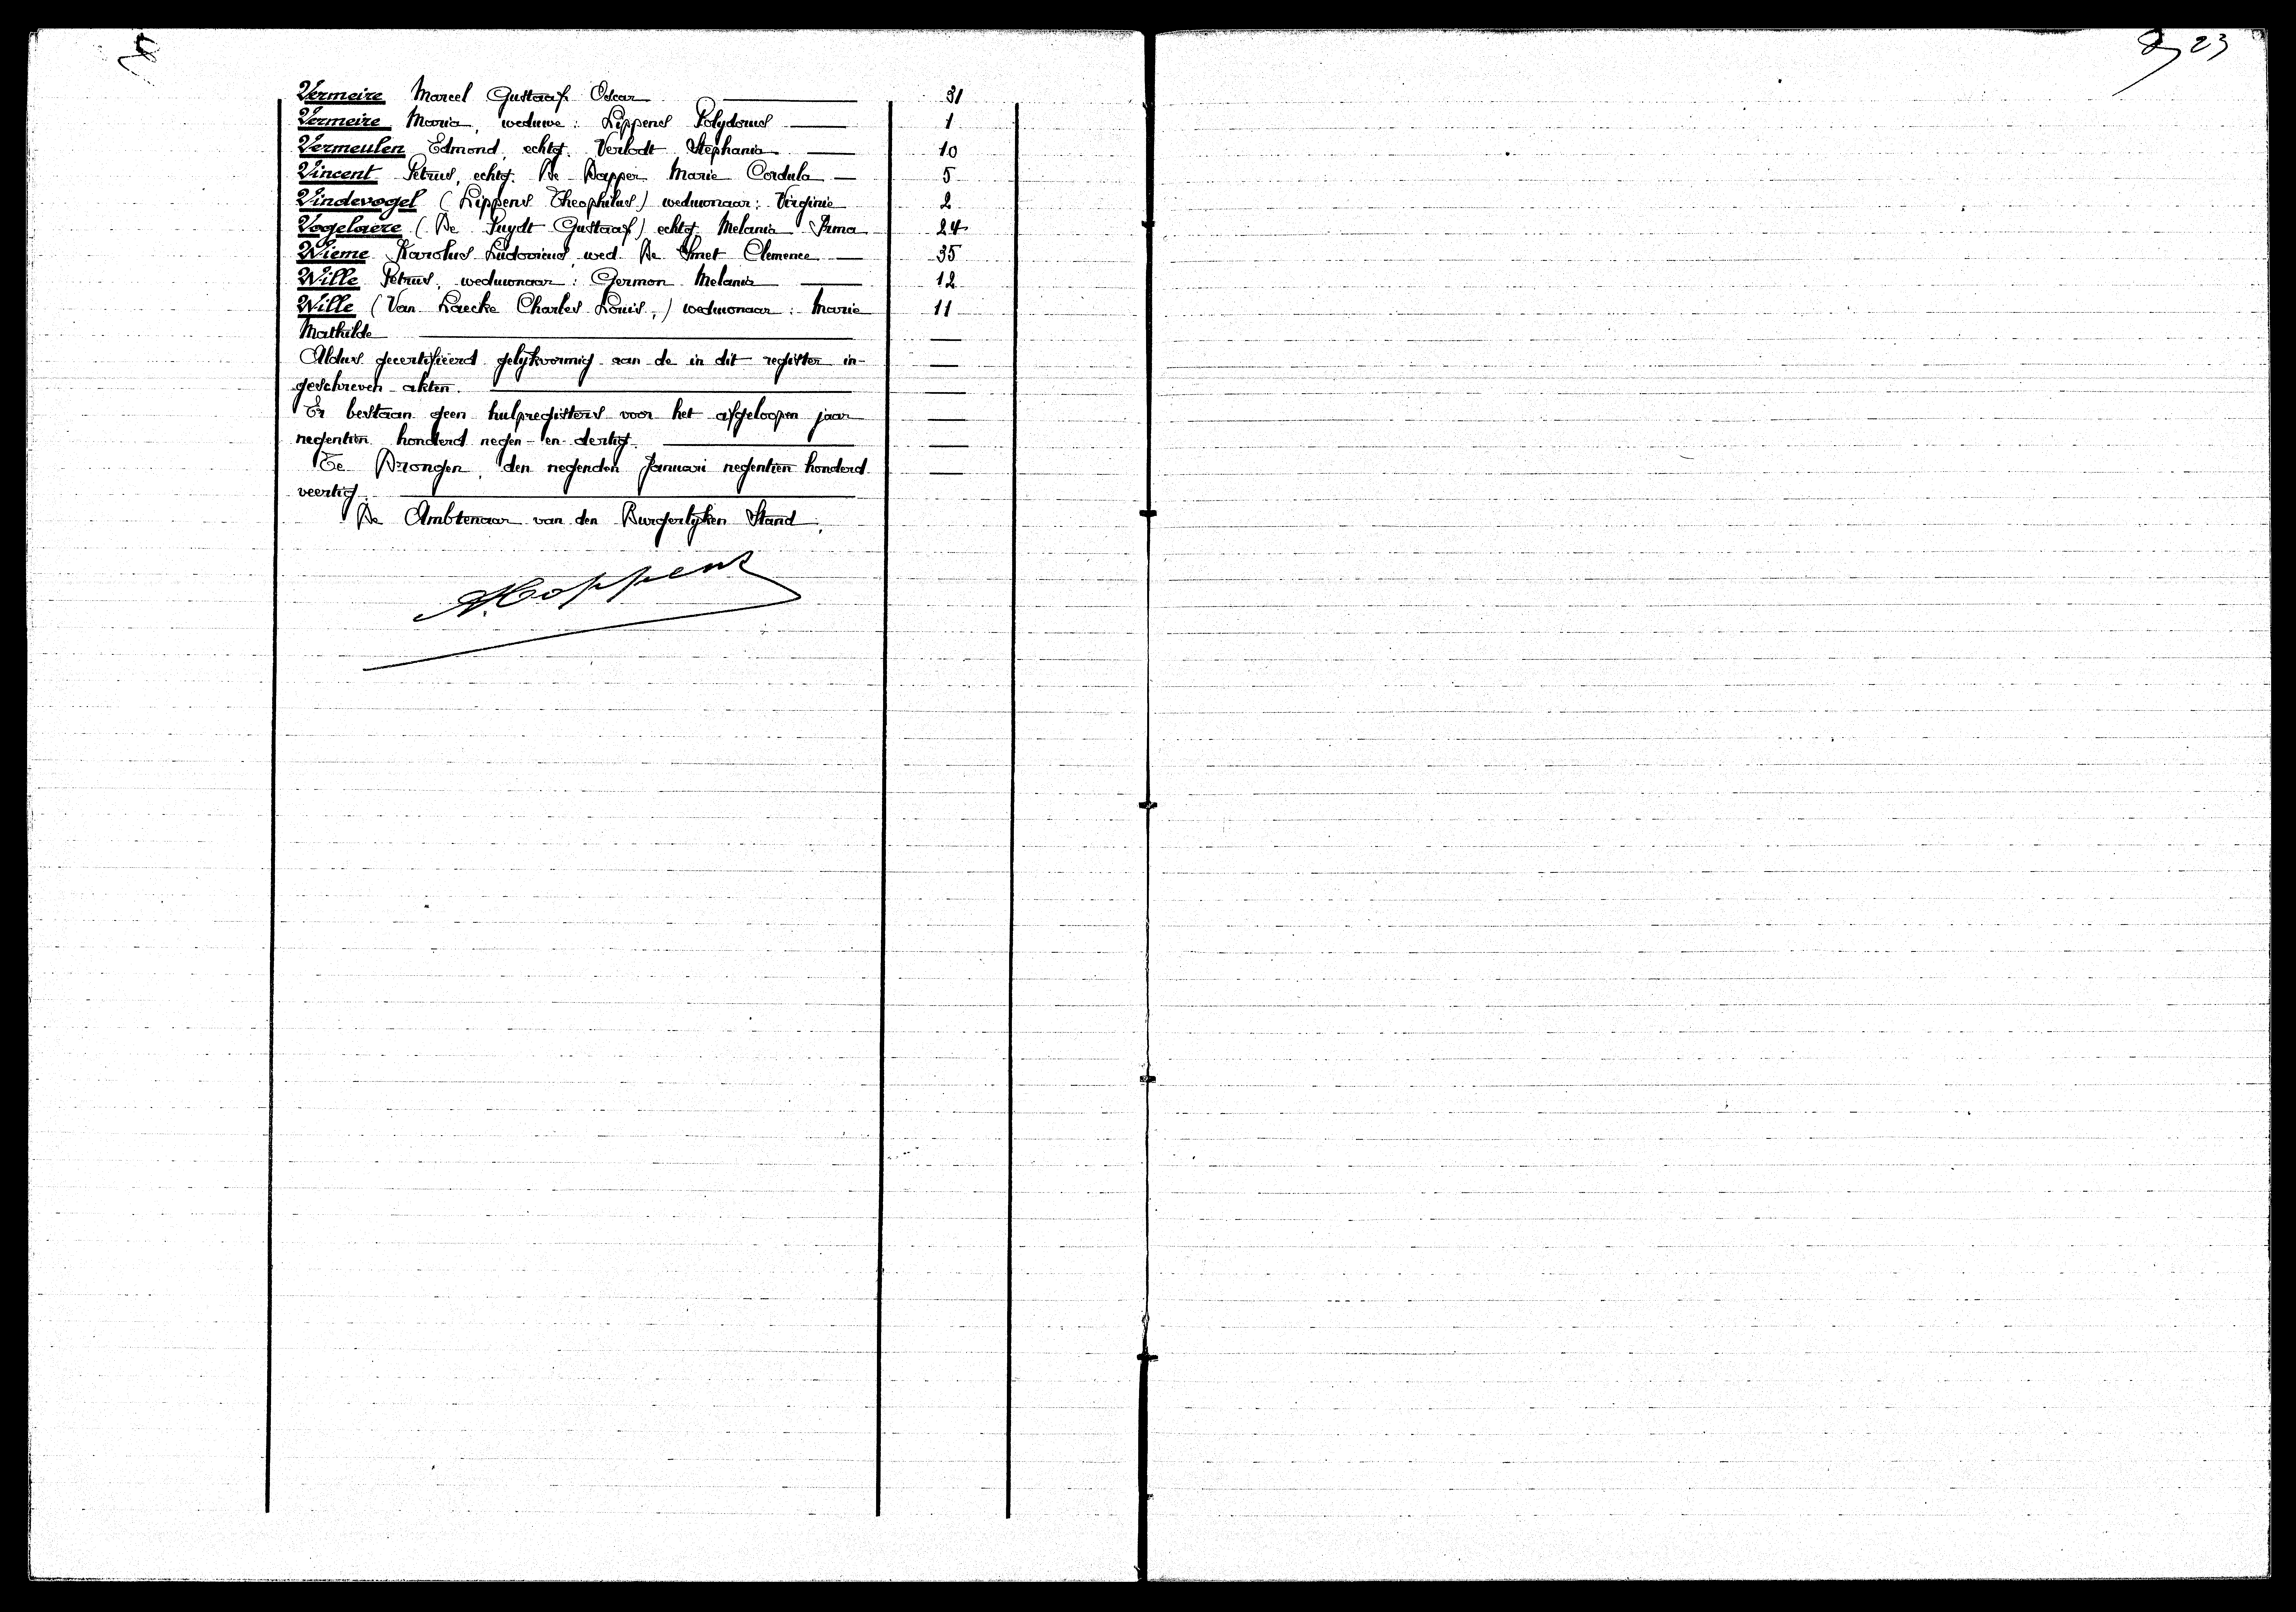 23
Vermeire Marcel Gustaaf Oscar 31
Vermeire Maria, weduwe: Lippens Polydorus 1
Vermeulen Edmond, echtg. Verlodt Stephania 10
Vincent Petrus, echtg. De Dapper Marie Cordula 5
Vindevogel (Lippens Theophilus) weduwnaar: Virginie 2
Vogelaere (De Puydt Gustaaf) echtg. Melania Irma 24
Wieme Karolus Ludovicus, wed. De Smet Clemence 35
Wille Petrus, weduwnaar: Germon Melania 12
Wille (Van Laecke Charles Louis,) weduwnaar: Marie 11
Mathilde
Aldus gecertifieerd gelijkvormig aan de in dit register in-
geschreven akten.
Er bestaan geen hulpregisters voor het afgeloopen jaar
negentien honderd negen-en-dertig.
Te Drongen, den negenden Januari negentien honderd
veertig.
De Ambtenaar van den Burgerlijken Stand,